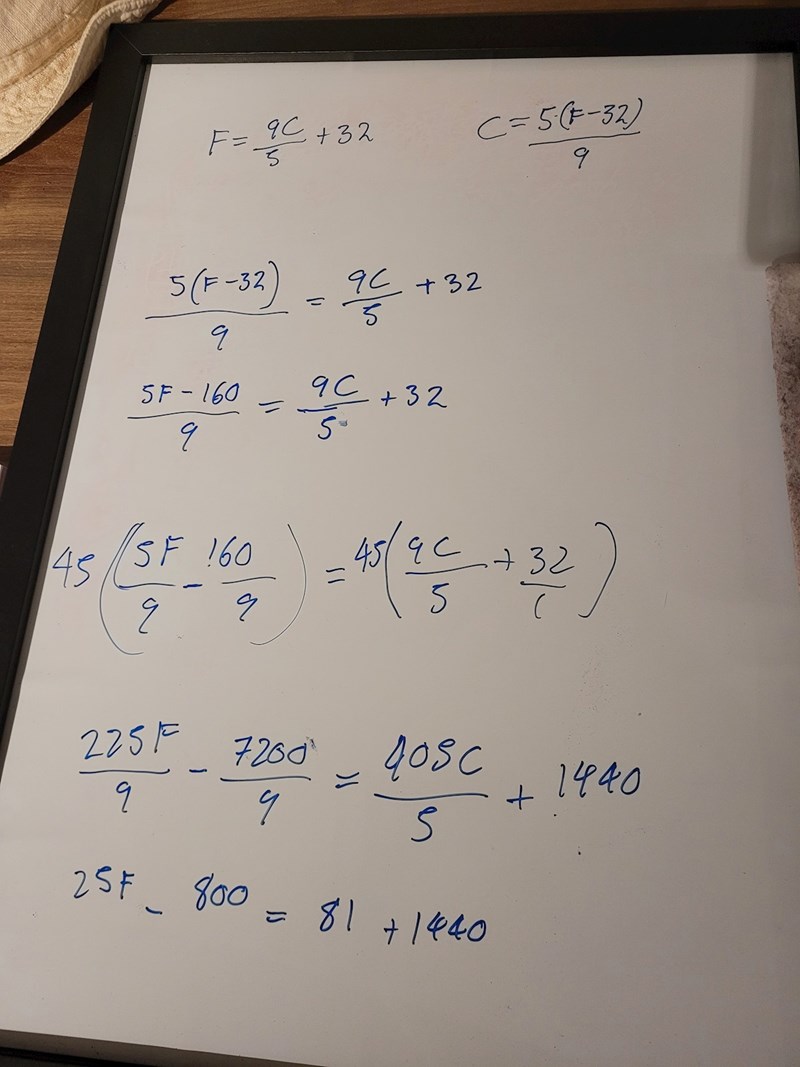 F = 9C/5 + 32    C = 5·(F-32)/9
5(F-32)/9 = 9C/5 + 32
5F-160/9 = 9C/5 + 32
45(5F/9 - 160/9) = 45(9C/5 + 32/1)
225F/9 - 7200/9 = 405C/5 + 1440
25F - 800 = 81 + 1440